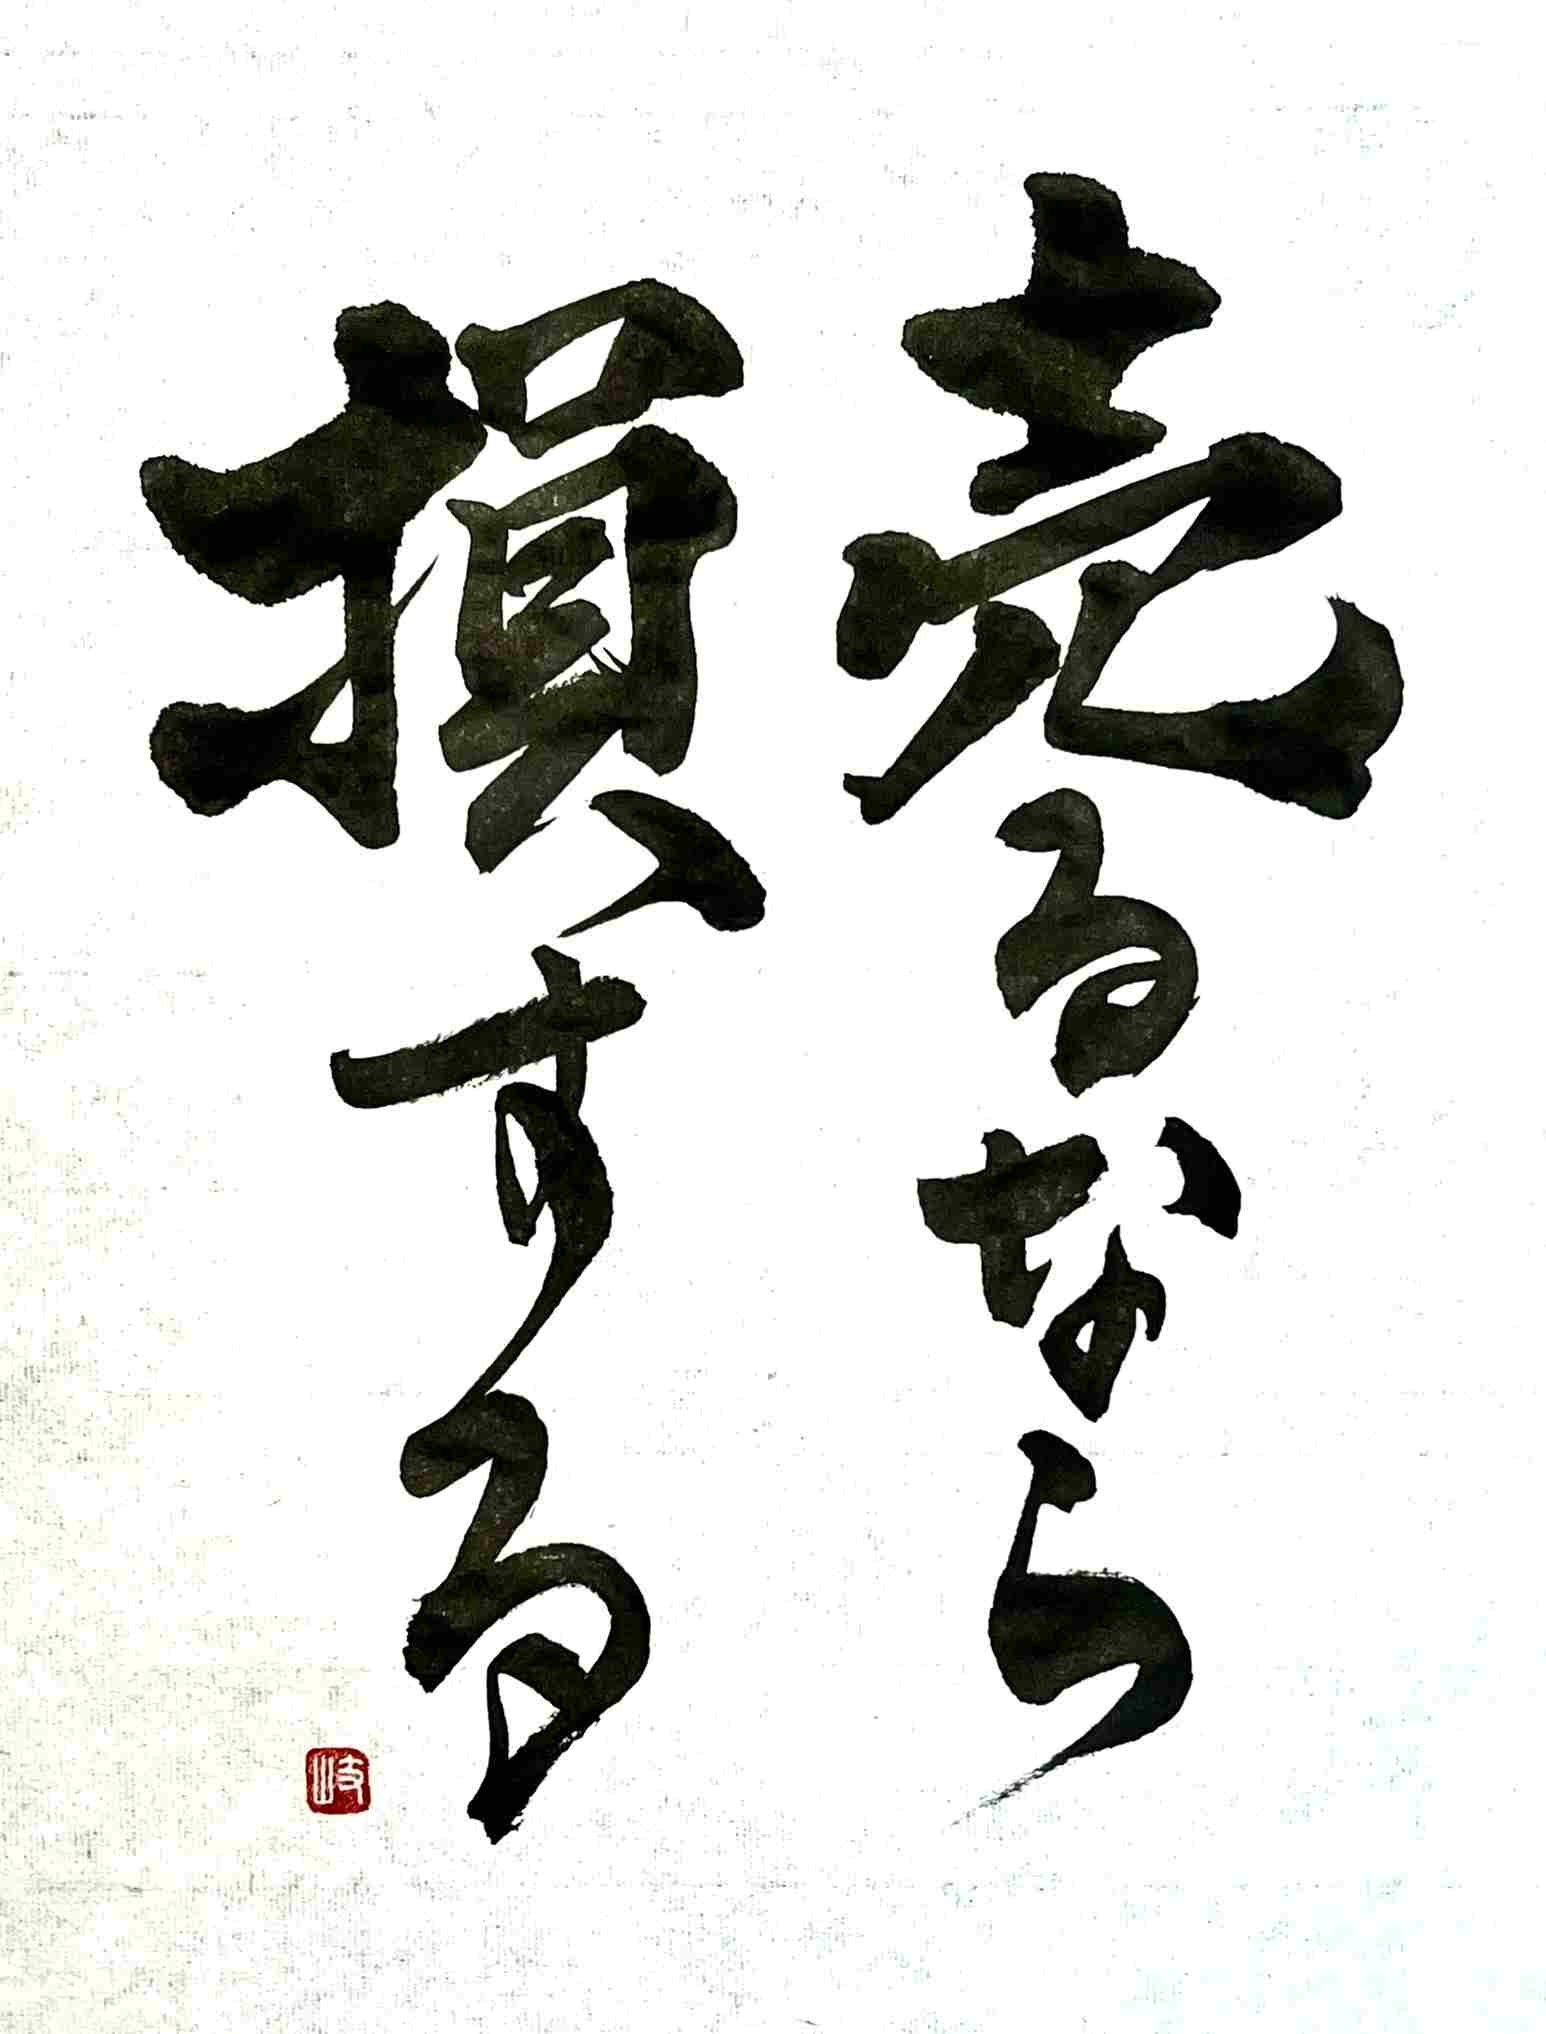 売るなら
損する
岐